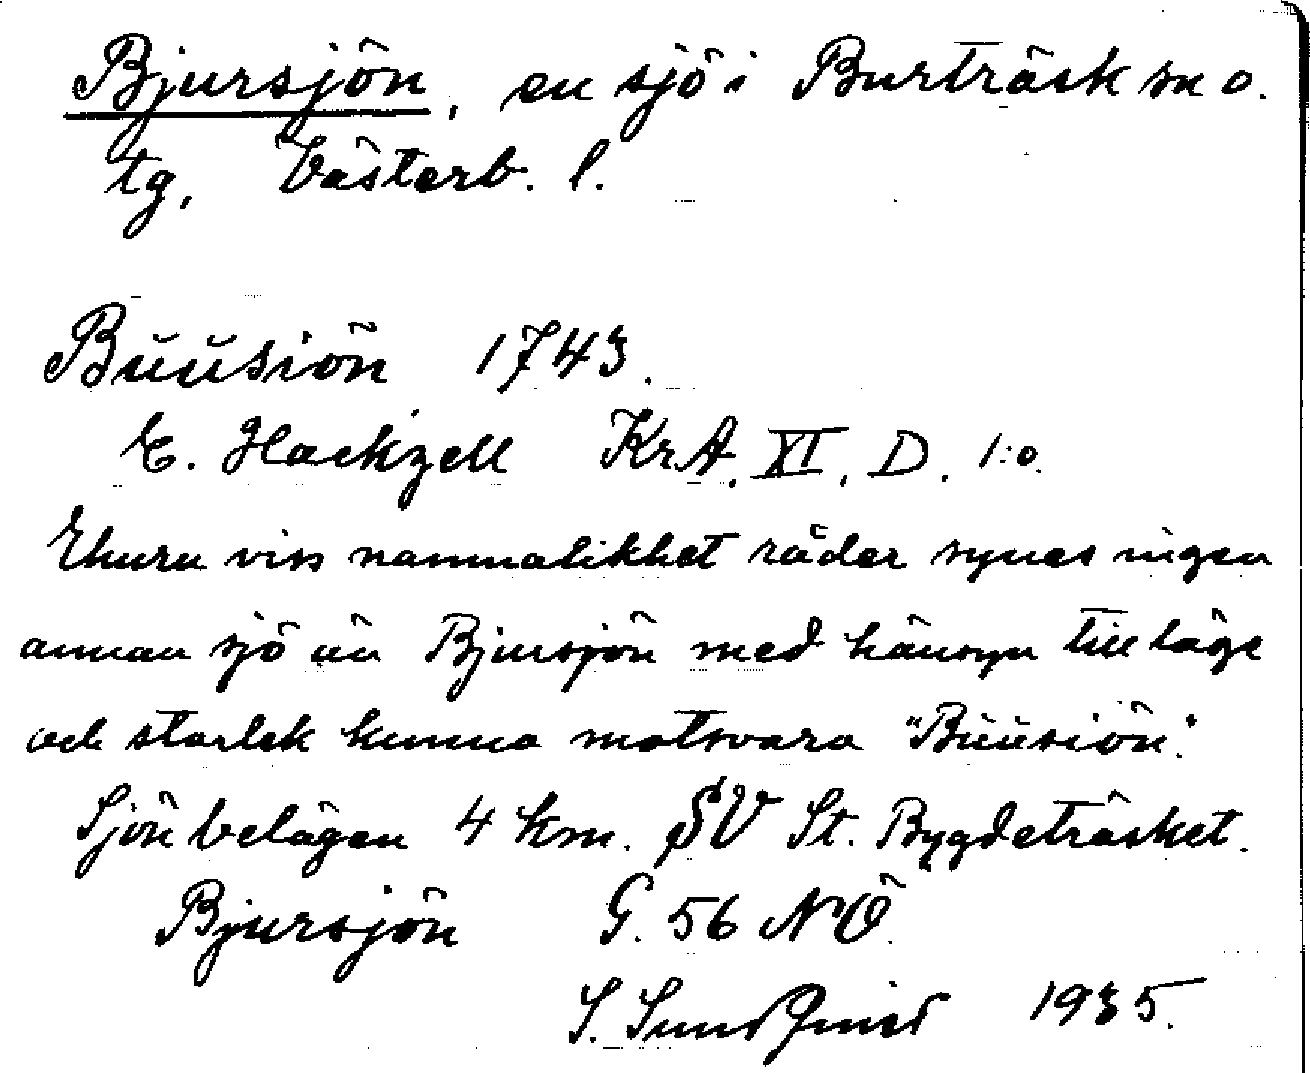 Bjursjön, en sjö i Burträsk sn o.
tg, Västerb. l.
Büüsiön 1743.
E. Hackzell KrA. XI. D. 1:o.
Ehuru viss namnlikhet råder synes ingen
annan sjö än Bjursjön med hänsyn till läge
och storlek kunna motsvara "Büüsiön".
Sjön belägen 4 km. SV St. Bygdeträsket.
Bjursjön G. 56 NÖ.
S. Sundqvist 1935.